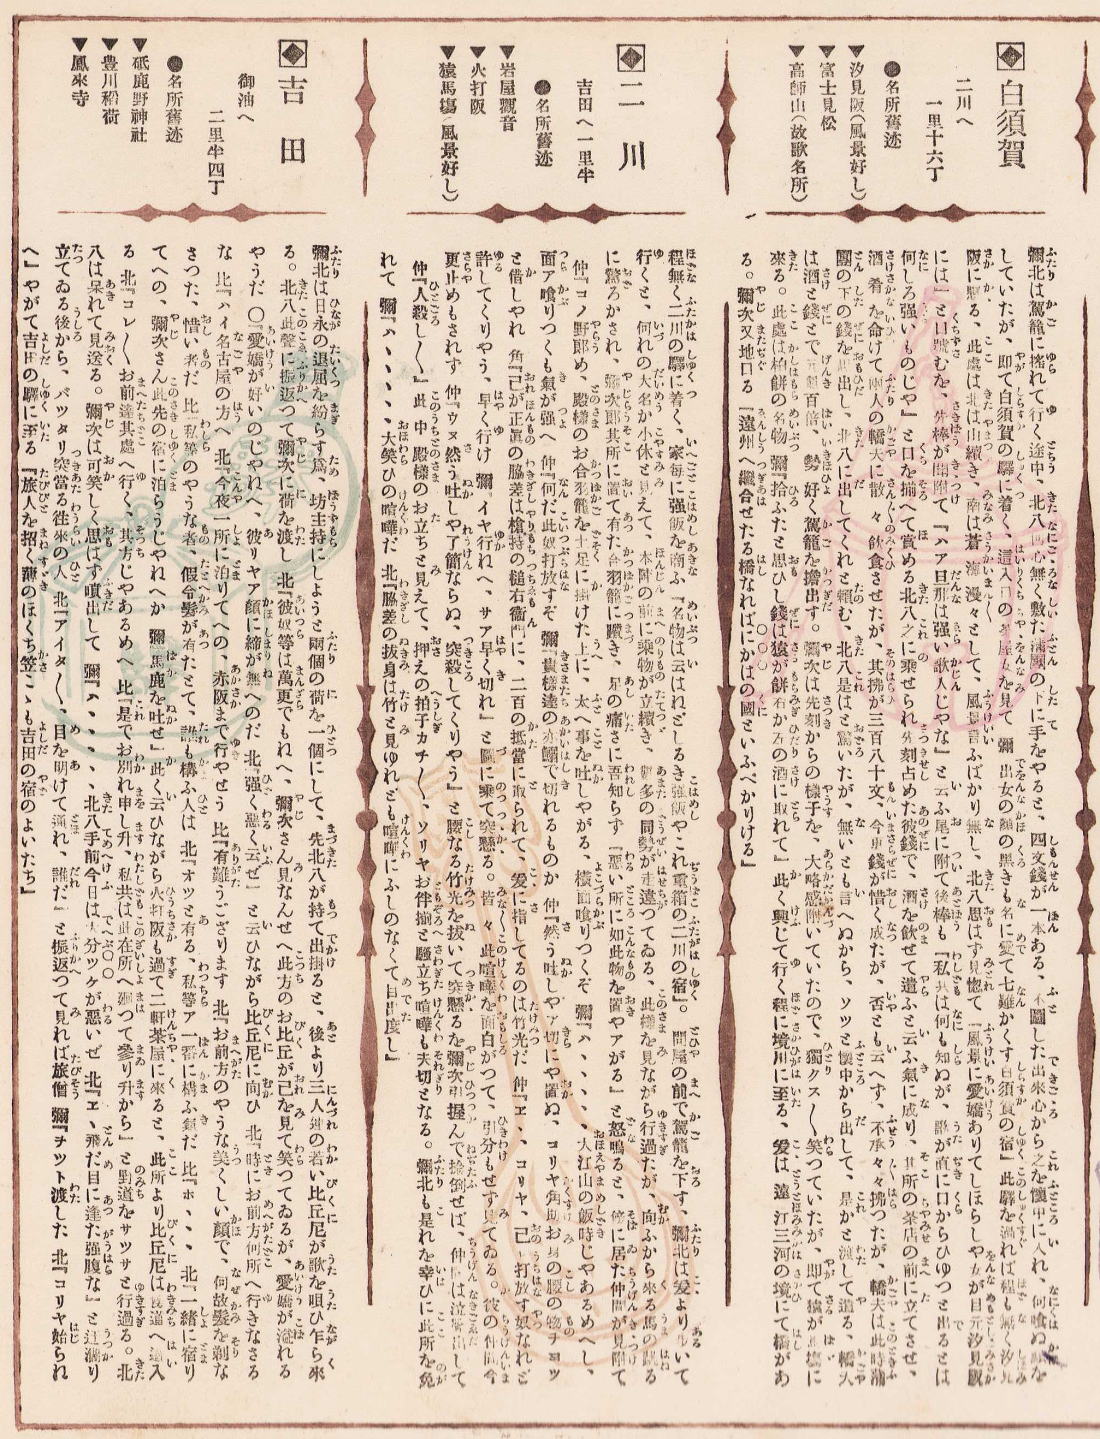 白須賀
二川へ
一里十六丁
●名所舊迹
▼汐見阪(風景好し)
▼富士見松
▼高師山(故歌名所)
彌北は駕籠に搖れて行く途中、北八何心無く敷た蒲團の下に手をやると、四文錢が一本ある、不圖した出來心から之を懷中に入れ、何喰ぬ顏を
していたが、即て白須賀の驛に着く、這入口の茶屋女を見て 彌『出女の顏の黒きも名に愛て七難かくす白須賀の宿』此驛を過れば程も無く汐見
阪に蒐る、此處は北は山續き、南は蒼海漫々として、風景言ふばかり無し、北八思はず見惚て『風景に愛嬌ありてしほらしや女が目元汐見阪
には』と口號むを、先棒が聞附て『ハア旦那は强い歌人じやな』と云ふ尾に附て後棒も『私共は何も知ぬが、誰が直に口からひゆつと出るとは
何しろ强いものじや』と口を揃へて賞める北八之に乘せられ先刻占めた彼錢で、酒を飮せて遣ふと云ふ氣に成り、其所の茶店の前に立てさせ、
酒肴を命けて兩人の轎夫に散々飮食させたが、其拂が三百八十文、今更錢が惜く成たが、否とも云へず、不承々々拂つたが、轎夫は此時蒲
團の下の錢を此出し、北八に出してくれと頼む、北八是はと驚いたが、無いとも言へぬから、ソツと懷中から出して、是かと渡して遣る、轎夫
は酒と錢とで元氣百倍、勢好く駕籠を擔出す。彌次は先刻からの樣子を、大略感附いていたので、獨クス〳〵笑つていたが、即て猿が馬場に
來る。此處は柏餅の名物 彌『拾ふたと思ひし錢は猿が餅右から左の酒に取れて』此く興じて行く程に境川に至る、爰は遠江三河の境にて橋があ
る。彌次又地口る『遠州へ繼合せたる橋なればにかはの國といふべかりける』
二川
吉田へ一里半
●名所舊迹
▼岩屋觀音
▼火打阪
▼猿馬塲(風景好し)
程無く二川の驛に着く、家毎に强飯を商ふ『名物は云はれどしるき强飯やこれ重箱の二川の宿』 問屋の前で駕籠を下す、彌北は爰より歩いて
行くと、何れの大名か小休と見えて、本陣の前に乘物が立續き、數多の同勢が走違つてゐる、此樣を見ながら行過たが、向ふから來る馬の跳る
に驚ろかされ、彌次郎其所に置て有た合羽籠に躓き、足の痛さに吾知らず『悪い所に如此物を置やアがる』と怒鳴ると、傍に居た仲間が見附て
仲『コノ野郎め、殿様のお合羽籠を土足に掛けた上に、太へ事を吐しやがる、横面喰りつくぞ 彌『ハ、、、、、大江山の飯時じやあるめへし、
面ア喰りつくも氣が强へ 仲『何だ此奴打放すぞ 彌『貴樣達の赤鰯で切れるものか 仲『然う吐しやア切にや置ぬ、コリヤ角助お身の腰の物チヨツ
と借しやれ 角『己が正眞の脇差は槍持の槌右衞門に、二百の抵當に取られて、爰に指してるのは竹光だ 仲『エ、、コリヤ、己ア打放す奴なれど
許してくりやう、早く行け 彌『イヤ行ねへ、サア早く切れ』と圖に乘て突懸る。皆々此喧嘩を面白がつて、引分もせず見てゐる。彼の仲間今
更止めもされず 仲『ウヌ然う吐しや了簡ならぬ、突殺してくりやう』と腰なる竹光を拔いて突懸るを彌次引握んで捻倒せば、仲間は泣聲出して
仲『人殺し〳〵』此中殿様のお立ちと見えて、押えの拍子カチ〳〵、ソリヤお伴揃と騷立ち喧嘩も夫切となる。彌北も是れを幸ひに此所を免
れて 彌『ハ、、、、、大笑ひの喧嘩だ 北『脇差の拔身は竹と見ゆれども喧嘩にふしのなくて目出度し』
吉田
御油へ
二里半四丁
●名所舊迹
▼砥鹿野神社
▼豊川稻荷
▼鳳來寺
彌北は日永の退屈を紛らす爲、坊主持にしようと兩個の荷を一個にして、先北八が持て出掛ると、後より三人連の若い比丘尼が歌を唄ひ乍ら來
る。北八此聲に振返つて彌次に荷を渡し 北『彼奴等は萬更でもねへ、彌次さん見なんせへ此方のお比丘が己を見て笑つてゐるが、愛嬌が溢れる
やうだ 〇『愛嬌が好いのじやねへ、彼リヤア顔に締が無へのだ 北『强く悪く云ぜ』と云ひながら比丘尼に向ひ 北『時にお前方何所へ行きなさる
な 比『ハイ名古屋の方へ 北『今夜一所に泊りてへの、赤阪まで行やせう 比『有難うござります 北『お前方のやうな美くしい顔で、何故髪を剃な
さつた、惜い者だ 比『私等のやうな者、假令髪が有たとて、誰も構ふ人は 北『オツと有る、私等ア一番に構ふ氣だ 比『ホ、、、 北『一緒に宿り
てへの、彌次さん此先の宿に泊らうじやねへか 彌『馬鹿を吐せ』此く云ひながら火打阪も過て二軒茶屋に來ると、此所より比丘尼は脇道へ這入
る 北『コレ〳〵お前達其處へ行く、其方じやあるめへ 比『是でお別れ申し升、私共は此在所へ廻つて參り升から』と野道をサツサと行過る。北
八は呆れて見送る。彌次は可笑しく思はず噴出して 彌『ハ、、、、、北八手前今日は大分ツケが悪いぜ 北『エ、飛だ目に逢た强腹な』と辻濁り
立てゐる後から、バツタリ突當る往來の人 北『アイタ〳〵、目を明けて通れ、誰だ』と振返つて見れば旅僧 彌『ヲツト渡した 北『コリヤ始られ
へ』やがて吉田の驛に至る『旅人を招く薄のほくち笠こゝも吉田の宿のよいたち』